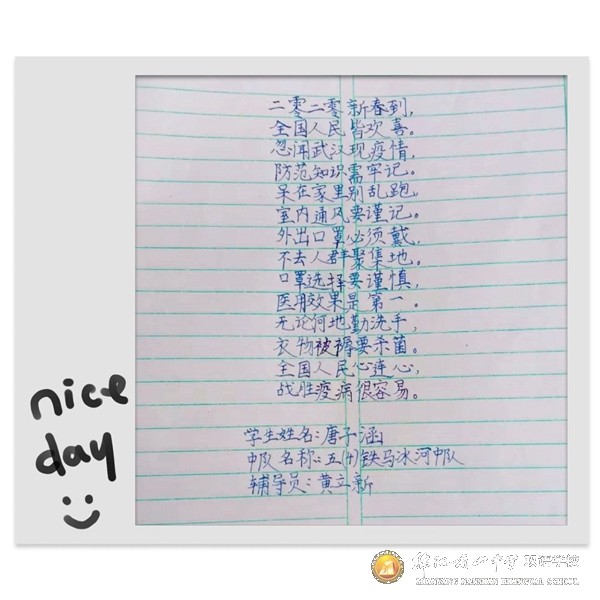 二零二零新春到,
全国人民皆欢喜。
忽闻武汉现疫情,
防范知识需牢记。
呆在家里别乱跑,
室内通风要谨记。
外出口罩必须戴,
不去人群聚集地。
口罩选择要谨慎,
医用效果是第一。
无论何地勤洗手,
衣物被褥要杀菌。
全国人民心连心,
战胜疫病很容易。
学生姓名:唐子涵
中队名称:五(4)铁马冰河中队
辅导员:黄立新
nice
day
双语学校
BILINGUAL SCHOOL